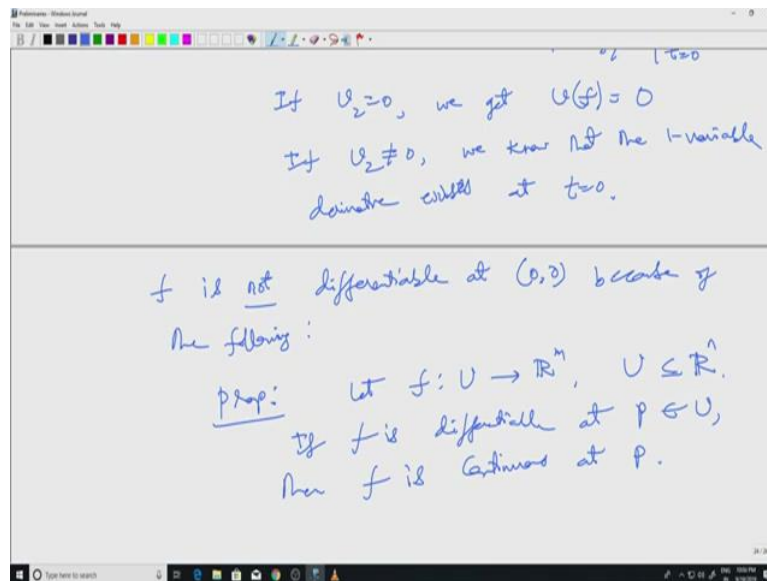 Preliminaries - Windows Journal
File Edit View Insert Actions Tools Help
B
t=0
If v₂=0, we get v(f) = 0
If v₂≠0, we know that the 1-variable
derivative exists at t=0.
f is not differentiable at (0,0) because of
the following:
Prop: Let f: U → ℝᵐ, U ⊆ ℝⁿ.
If f is differentiable at p ∈ U,
then f is continuous at p.
Type here to search
ENG